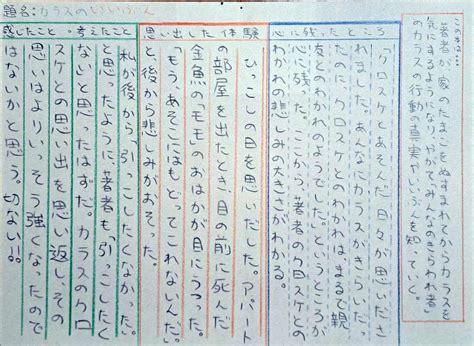 題名：カラスのいいぶん
この本は…
著者が家のたまごをぬすまれてからカラスを
気にするようになり、やがてみんなのきらわれ者
のカラスの行動の真実やいいぶんを知っていく。
心に残ったところ
「クロスケとあそんだ日々が思いださ
れました。あんなにカラスがきらいだっ
たのに、クロスケとのわかれはまるで親
友とのわかれのようでした。」というところが
心に残った。ここから、著者のクロスケとの
わかれの悲しみの大きさがわかる。
思い出した体験
ひっこしの日を思いだした。アパート
の部屋を出たとき、目の前に死んだ
金魚の「モモ」のおはかが目にうつった。
「もうあそこにはもどってこれないんだ。」
と、後から悲しみがおそった。
感じたこと・考えたこと
私が後から「引っこしたくなかった。」
と思ったように、著者も「引っこしたく
ない」と思ったはずだ。カラスのクロ
スケとの思い出を思い返し、その
思いはよりいっそう強くなったので
はないかと思う。切ない!!。